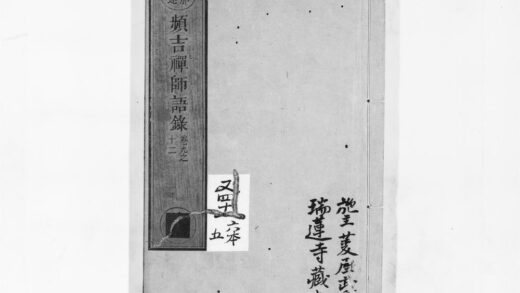 頻吉禪師語錄
卷九之
十二
又四十
六本
五
施主菱屋
瑞蓮寺藏